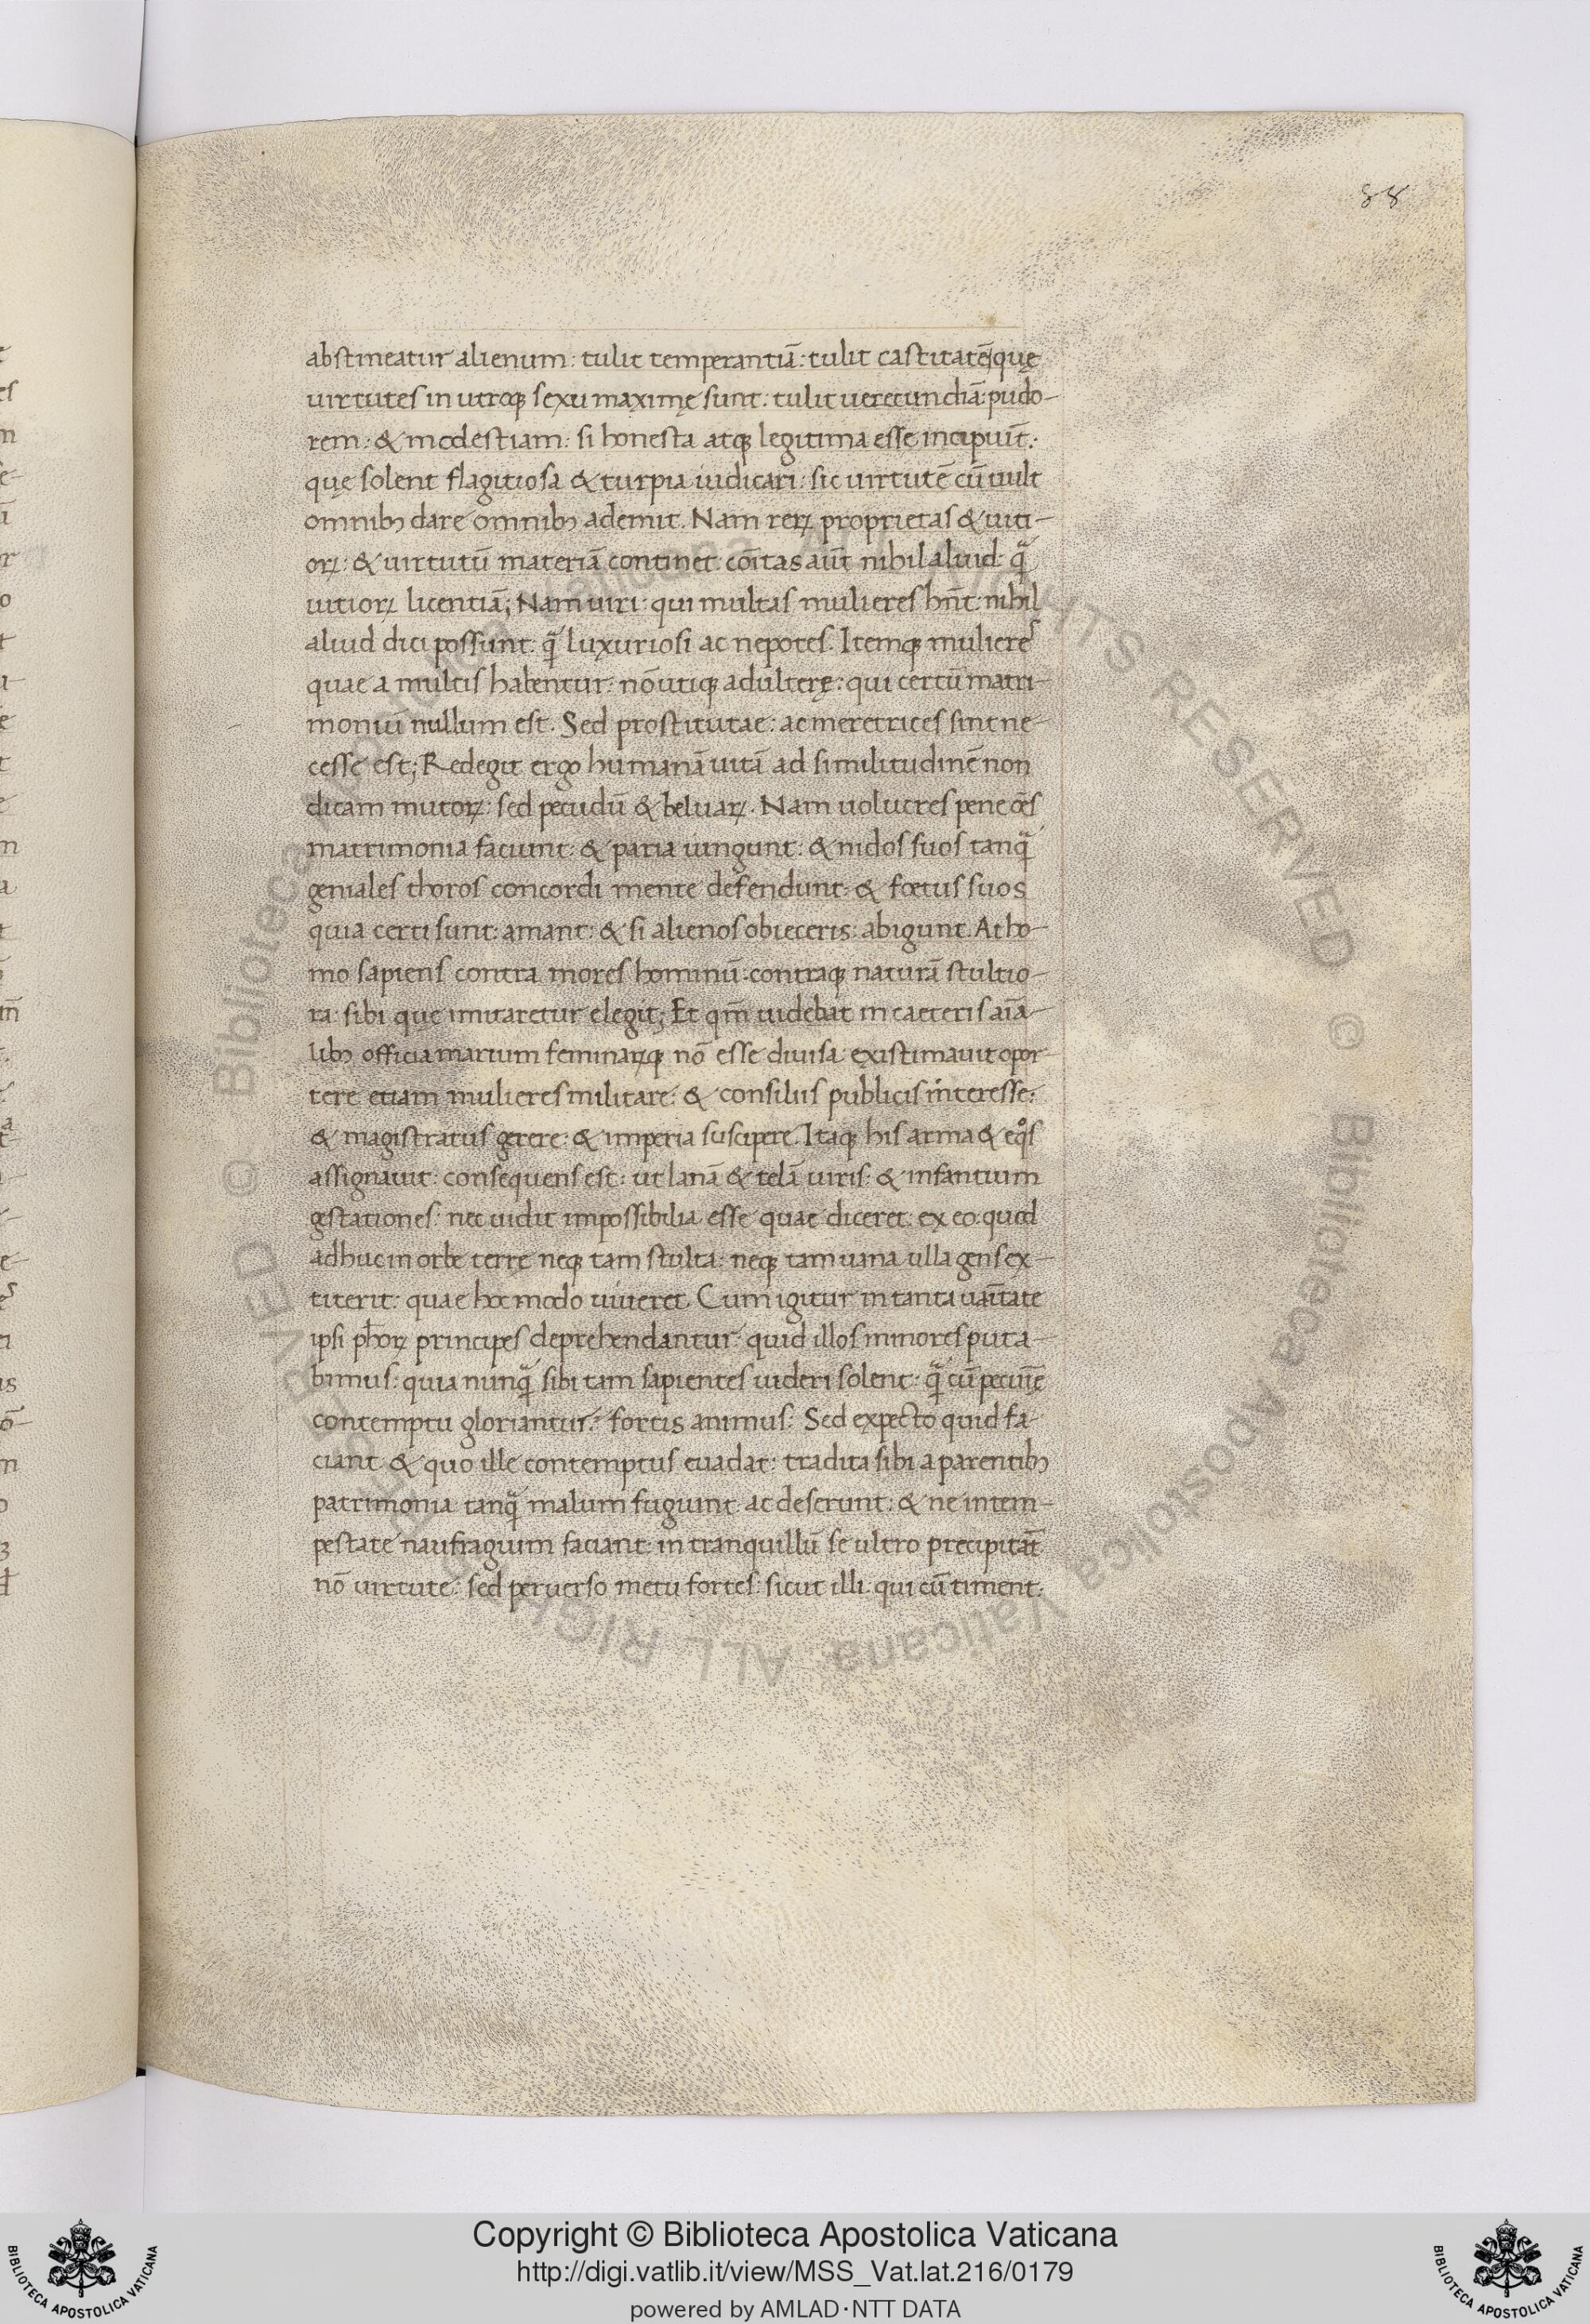 88
abstineatur alienum: tulit temperantiā: tulit castitatē quę
uirtutes in utroq; sexu maximę sunt: tulit uerecundiā: pudo-
rem: & modestiam: si honesta atq; legitima esse incipiūt:
quę solent flagitiosa & turpia iudicari: sic uirtutē cū uult
omnib; dare omnib; ademit. Nam reꝝ proprietas & uiti-
oꝝ: & uirtutū materiā continet: cōitas aūt nihil aliud: q̄
uitioꝝ licentiā; Nam uiri: qui multas mulieres hn̄t: nihil
aliud dici possunt: q̄ luxuriosi ac nepotes. Itemq; mulieres
quae a multis habentur: nō utiq; adulterę: qui certū matri-
moniū nullum est. Sed prostitutae: ac meretrices sint ne-
cesse est; Redegit ergo humanā uitā ad similitudinē non
dicam mutoꝝ: sed pecudū & beluaꝝ. Nam uolucres pene oēs
matrimonia faciunt: & paria iungunt: & nidos suos tanq̄
geniales thoros concordi mente defendunt: & fœtus suos
quia certi sunt: amant: & si alienos obieceris: abigunt. At ho-
mo sapiens contra mores hominū: contraq; naturā stultio-
ra: sibi quę imitaretur elegit; Et qm̄ uidebat in caeteris aīa-
lib; officia marium feminaꝝq; nō esse diuisa: existimauit opor-
tere etiam mulieres militare: & consiliis publicis interesse:
& magistratus gerere: & imperia suscipere. Itaq; his arma & eqos
assignauit: consequens est: ut lanā & telā uiris: & infantium
gestationes: nec uidit impossibilia esse quae diceret: ex eo: quod
adhuc in orbe terre neq; tam stulta: neq; tam uana ulla gens ex-
titerit: quae hoc modo uiueret. Cum igitur in tanta uaītate
ipsi ph̄oꝝ principes deprehendantur: quid illos minores puta-
bimus: quia nūnq̄ sibi tam sapientes uideri solent: q̄ cū pecunię
contemptu gloriantur: fortis animus: Sed expecto quid fa-
ciant & quo ille contemptus euadat: tradita sibi a parentib;
patrimonia tanq̄ malum fugiunt: ac deserunt: & ne in tem-
pestate naufragium faciant: in tranquillū se ultro precipitāt
nō uirtute: sed peruerso metu fortes: sicut illi: qui cū timent:
Copyright © Biblioteca Apostolica Vaticana
http://digi.vatlib.it/view/MSS_Vat.lat.216/0179
powered by AMLAD·NTT DATA
BIBLIOTECA APOSTOLICA VATICANA
BIBLIOTECA APOSTOLICA VATICANA